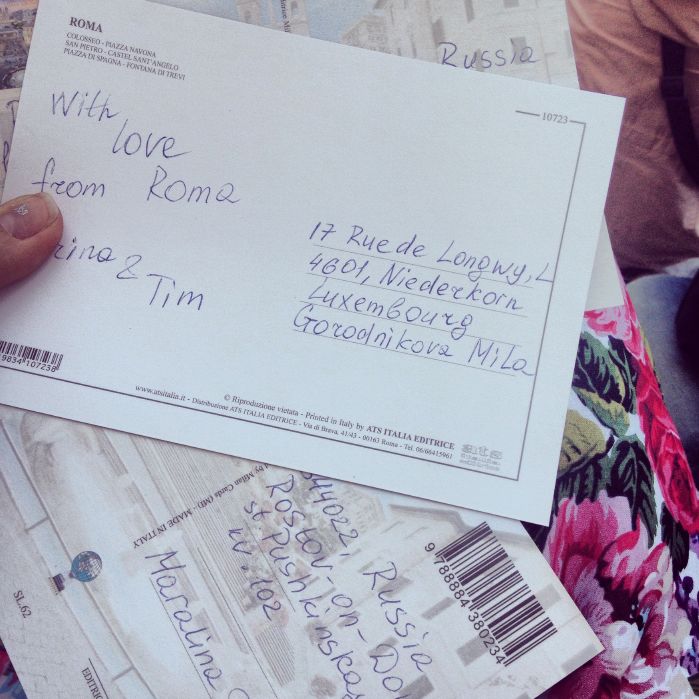 Russia
ROMA
COLOSSEO - PIAZZA NAVONA
SAN PIETRO - CASTEL SANT'ANGELO
PIAZZA DI SPAGNA - FONTANA DI TREVI
10723
With
love
from Roma
&
Tim
17 Rue de Longwy, L
4601, Niederkorn
Luxembourg
Gorodnikova Mila
9834 107238
www.atsitalia.it - Distribuzione ATS ITALIA EDITRICE - Via di Brava, 41/43 - 00163 Roma - Tel. 06/66415961
© Riproduzione vietata - Printed in Italy by ATS ITALIA EDITRICE
ats
by Milan Cards (MI) - MADE IN ITALY
344022, Russia
Rostov-on-Do
st Pushkinskay
kv. 102
Maralina
9 788884 380234
SL.62
EDITRIC